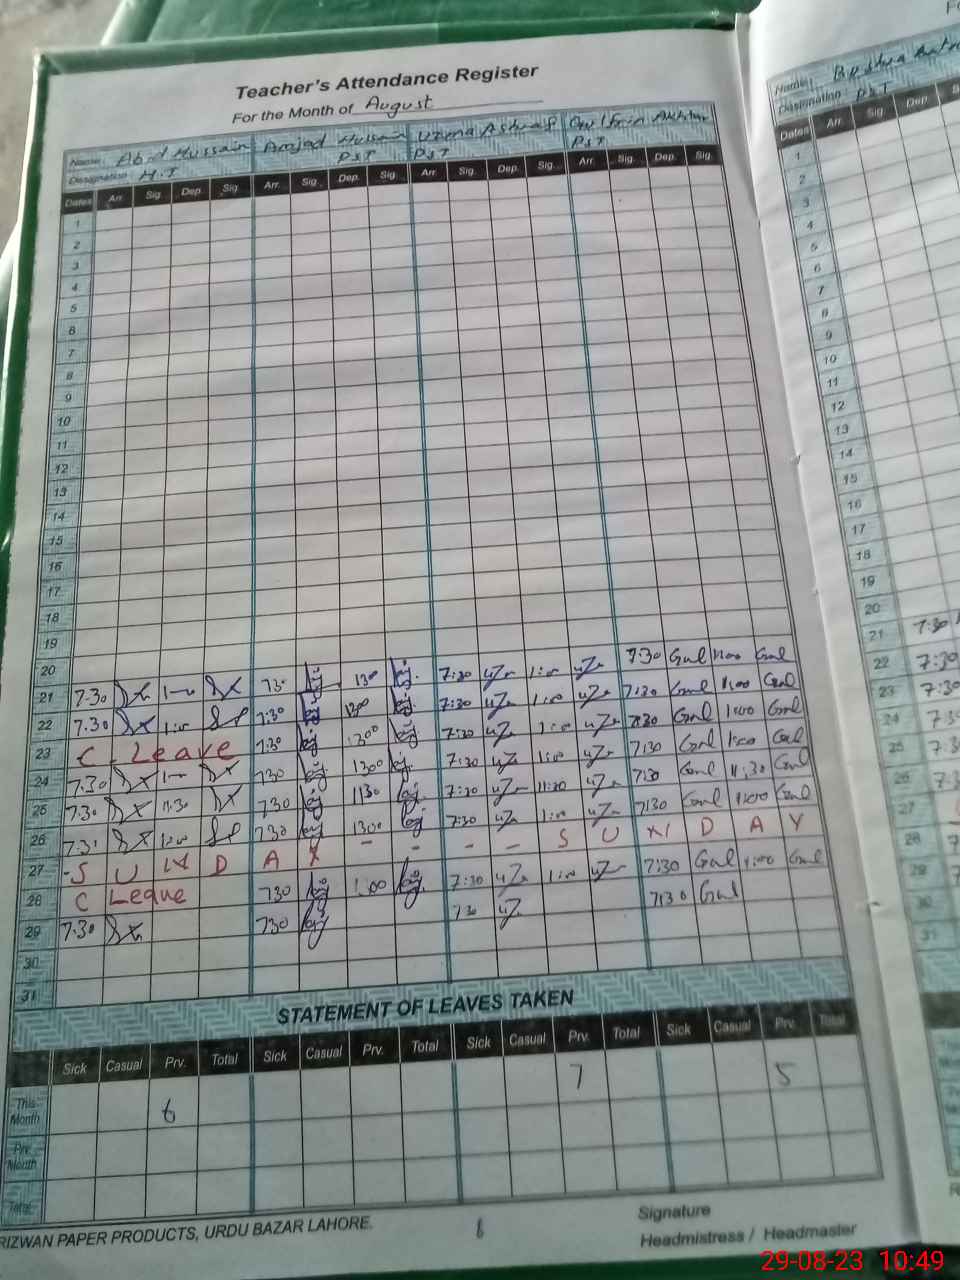 Teacher's Attendance Register
For the Month of August
Name: Abid Hussain Amjad Hussain Uzma Ashraf Akhtar
Designation H.T PST PST PST
Dates Arr. Sig. Dep. Sig. Arr. Sig. Dep. Sig. Arr. Sig. Dep. Sig. Arr. Sig. Dep. Sig.
1
2
3
4
5
6
7
8
9
10
11
12
13
14
15
16
17
18
19
20
21 7.30 1-00 730 130 7:30 1:00 7:30 Gul 1:00 Gul
22 7.30 1:00 7:30 1300 7:30 1:00 7:30 Gul 1:00 Gul
23 C. Leave 7:30 1300 7:30 1:00 7:30 Gul 1:00 Gul
24 7.30 1-00 730 1300 7:30 1:00 7:30 Gul 1:00 Gul
25 7.30 11.30 730 1130 7:30 11:30 7:30 Gul 11:30 Gul
26 7.31 1:00 730 1300 7:30 1:00 7:30 Gul 1:00 Gul
27 S U N D A Y - - - - S U N D A Y
28 C Leave 730 1:00 7:30 1:00 7:30 Gul 1:00 Gul
29 7.30 730 730 7:30 Gul
30
31
STATEMENT OF LEAVES TAKEN
Sick Casual Prv. Total Sick Casual Prv. Total Sick Casual Prv. Total Sick Casual Prv. Total
This Month 6 7 5
Prv. Month
Total
RIZWAN PAPER PRODUCTS, URDU BAZAR LAHORE.
8
Signature
Headmistress / Headmaster
Name: Bushra
Designation PST
Dates Arr. Sig. Dep.
1
2
3
4
5
6
7
8
9
10
11
12
13
14
15
16
17
18
19
20
21 7:30
22 7:30
23 7:30
24 7:30
25 7:30
26 7:3
27
28 7
29
30
31
29-08-23 10:49